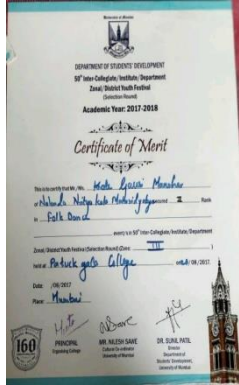 University of Mumbai
DEPARTMENT OF STUDENTS' DEVELOPMENT
50th Inter-Collegiate/Institute/Department
Zonal/District Youth Festival
(Selection Round)
Academic Year: 2017-2018
Certificate of Merit
This is to certify that Mr./Ms. Gauri Manohar
of Nalanda Nritya Kala Mahavidyalaya secured II Rank
in Folk Dance
event/s in 50th Inter-Collegiate/Institute/Department
Zonal/District Youth Festival (Selection Round) (Zone III)
held at College on /08/2017
Date: /08/2017
Place: Mumbai
160
PRINCIPAL
Organising College
MR. NILESH SAWE
Cultural Co-ordinator
University of Mumbai
DR. SUNIL PATIL
Director
Department of
Students' Development,
University of Mumbai